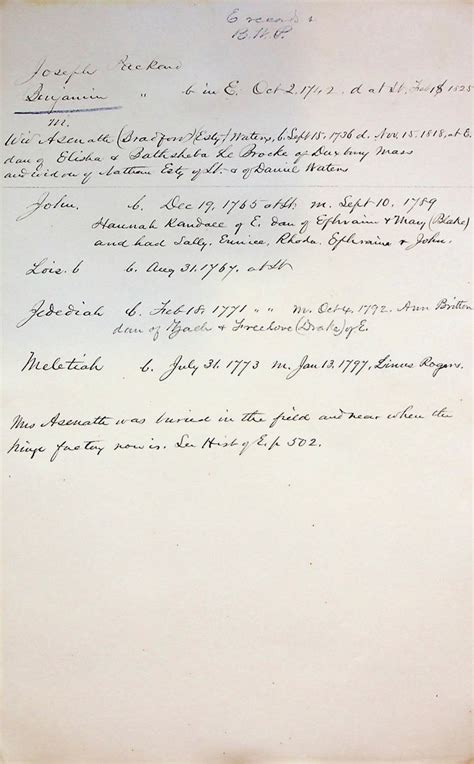 E records
B. W. P.
Joseph Packard
Benjamin " b in E. Oct 2, 1742. d at St. Feb 18 1825
m.
Wid Asenath (Bradford) (Esty) Waters, b. Sept 15, 1736 d. Nov. 15, 1818, at E.
dau of Elisha & Bathsheba Le Brocke of Duxbury Mass
and widow of Nathan Esty of St. & of Daniel Waters
John. b. Dec 19, 1765 at St m. Sept 10. 1789
Hannah Randall of E. dau of Ephraim & Mary (Blake)
and had Sally, Eunice, Rhoda. Ephraim & John.
Lois. b b. Aug 31. 1767. at St
Jedediah b. Feb 18. 1771 " " m. Oct 4. 1792. Ann Britten
dau of Zach & Freelove (Drake) of E.
Meletiah b. July 31. 1773 m. Jan 13. 1797, Linus Rogers.
Mrs Asenath was buried in the field and near when the
hinge factory now is. See Hist of E. p 502.